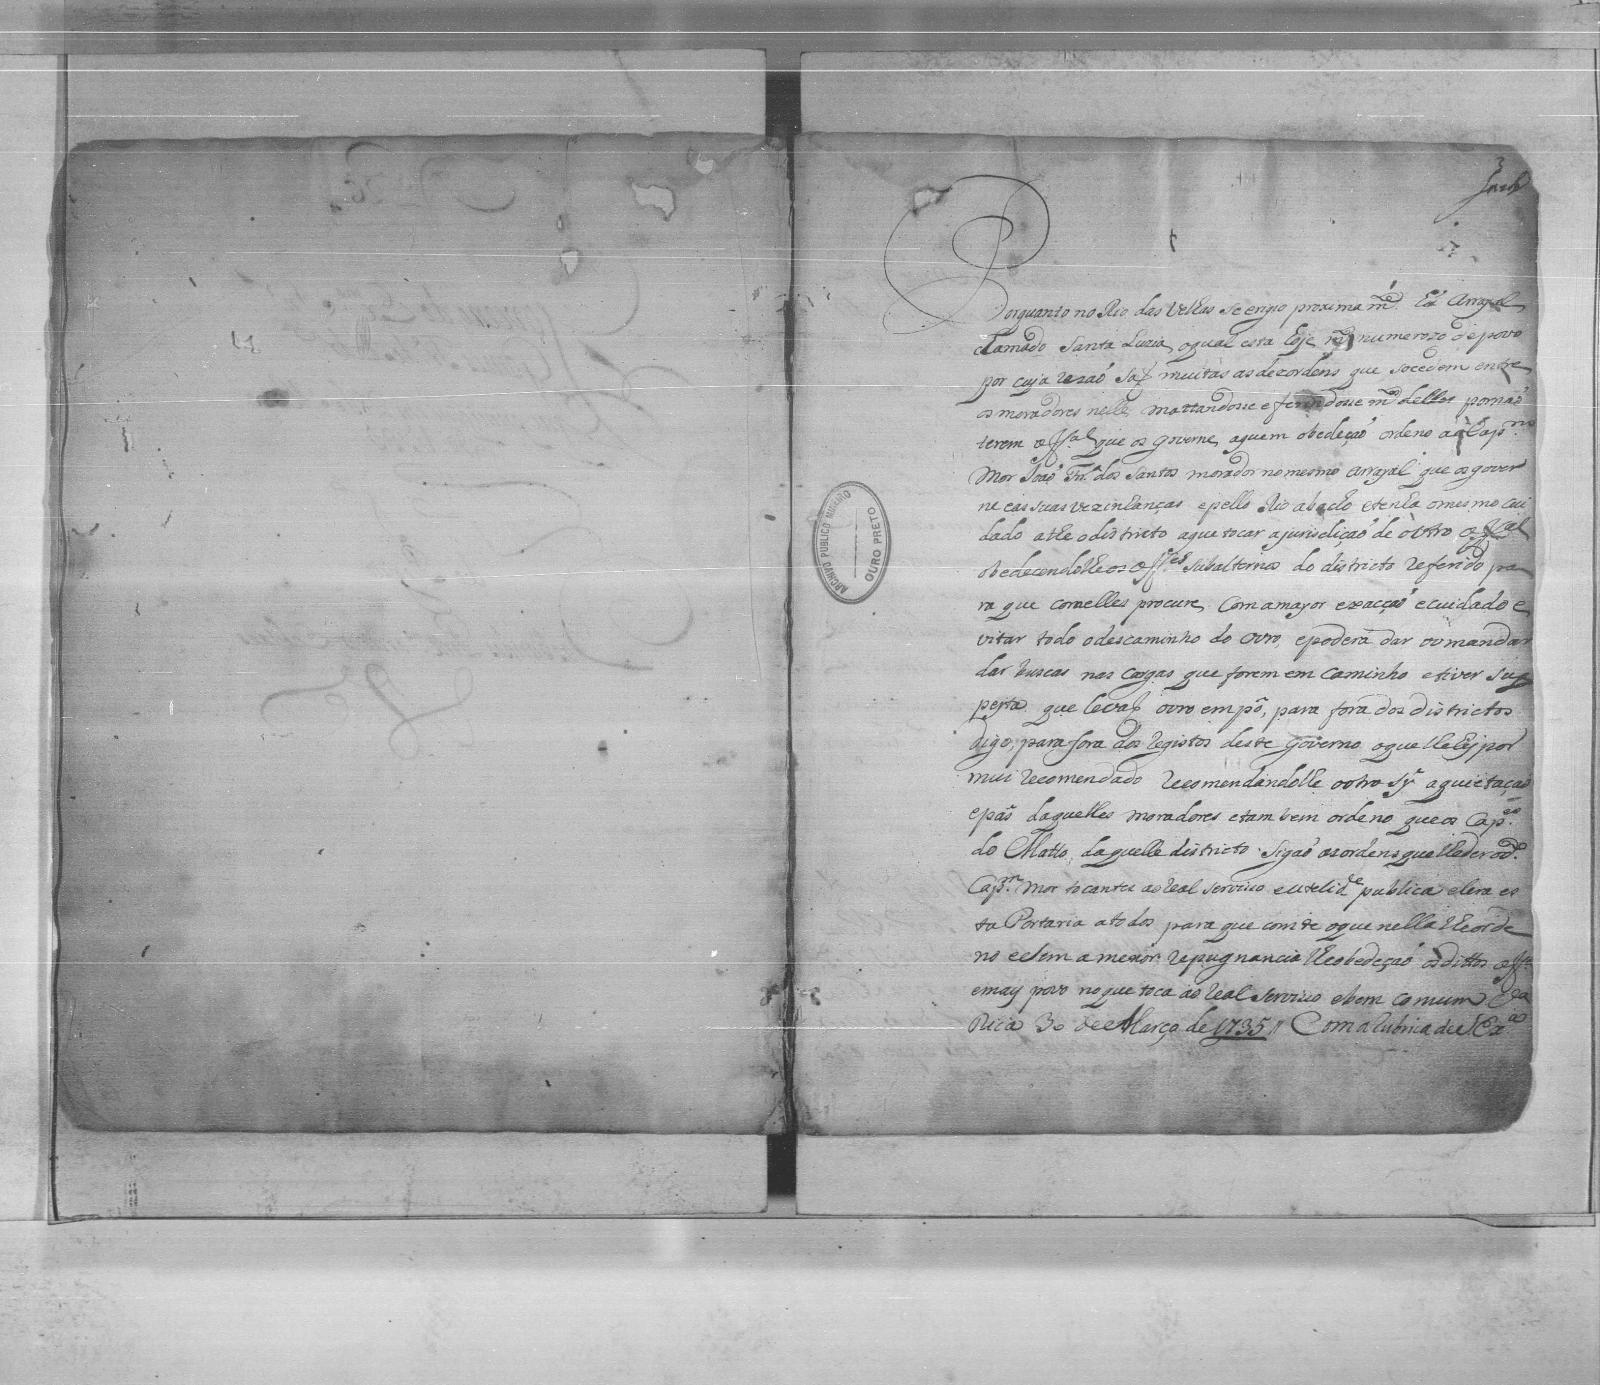 3
ARCHIVO PUBLICO MINEIRO
OURO PRETO
Porquanto no Rio das Velhas se erigio proxima mte. hũ Arrayal
chamado Santa Luzia, oqual esta hoje mto numerozo de povo
por cuja rezaõ saõ muitas as dezordens que socedem entre
os moradores nelle, mattandosse e ferindosse mtos delles por naõ
terem offal que os governe, aquem obedeçaõ ordeno ao Capm.
Mor Joaõ Frz. dos Santos morador no mesmo Arrayal que os gover
ne eas suas vezinhanças epello Rio abacho etenha omesmo cui
dado athe odistricto aque tocar ajurisdiçaõ de outro offal
obedecendolhe os offes. Subalternos do districto referido pa
ra que comelles procure, Com amayor exacçaõ ecuidado e
vitar todo odescaminho do ouro, epoderá dar ou mandar
dar buscas nas Cargas que forem em Caminho etiver sus
peita que levaõ ouro em pó, para fora dos districtos
digo, para fora dos Registos deste Governo oque lhe hey por
mui recomendado recomendandolhe outro sy aquietaçaõ
epás daquelles moradores etambem ordeno que os Capes.
do Matto, daquelle districto sigaõ as ordens que lhe der o do.
Capm. Mor tocantes ao real serviço eutelide publica elera es
ta Portaria atodos para que conste oque nella lhe orde
no esem a menor repugnancia lhe obedeçaõ os dittos offes
emay povo no que toca ao real serviço ebem comum Va
Rica 30 de Março de 1735 // Com a Rubrica de S Exa